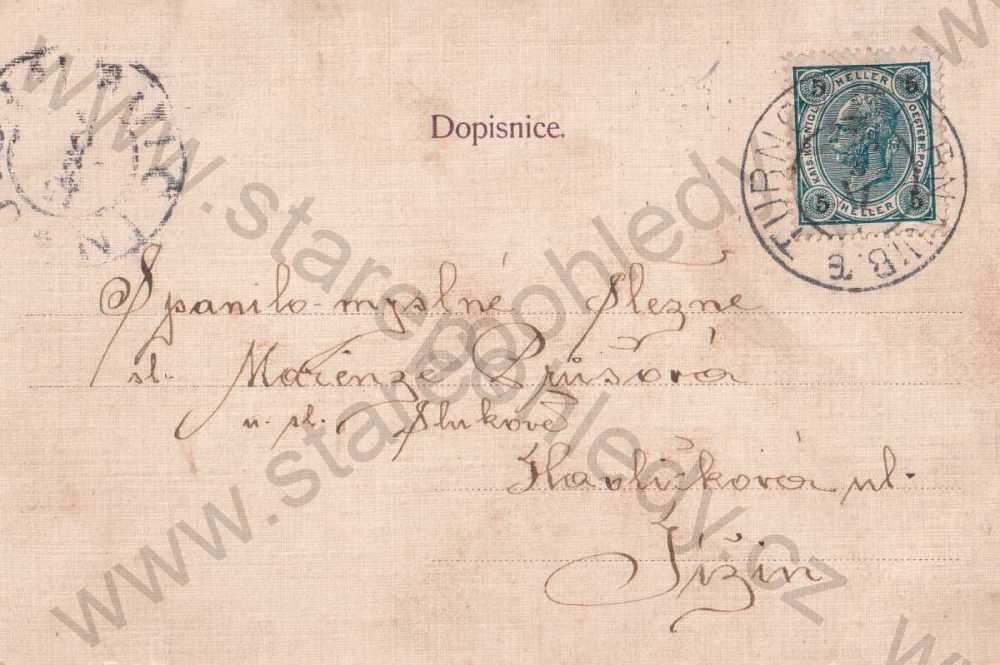 Dopisnice.
5 HELLER 5
KAIS. KOENIGL. OESTERR. POST
5 HELLER 5
TURN
Spanilo-myslné Slezně
sl. Mařenze Průšova
u. sl. Slukové
Havlíčková ul.
Jižin
www.starepohledy.cz
www.starepohledy.cz